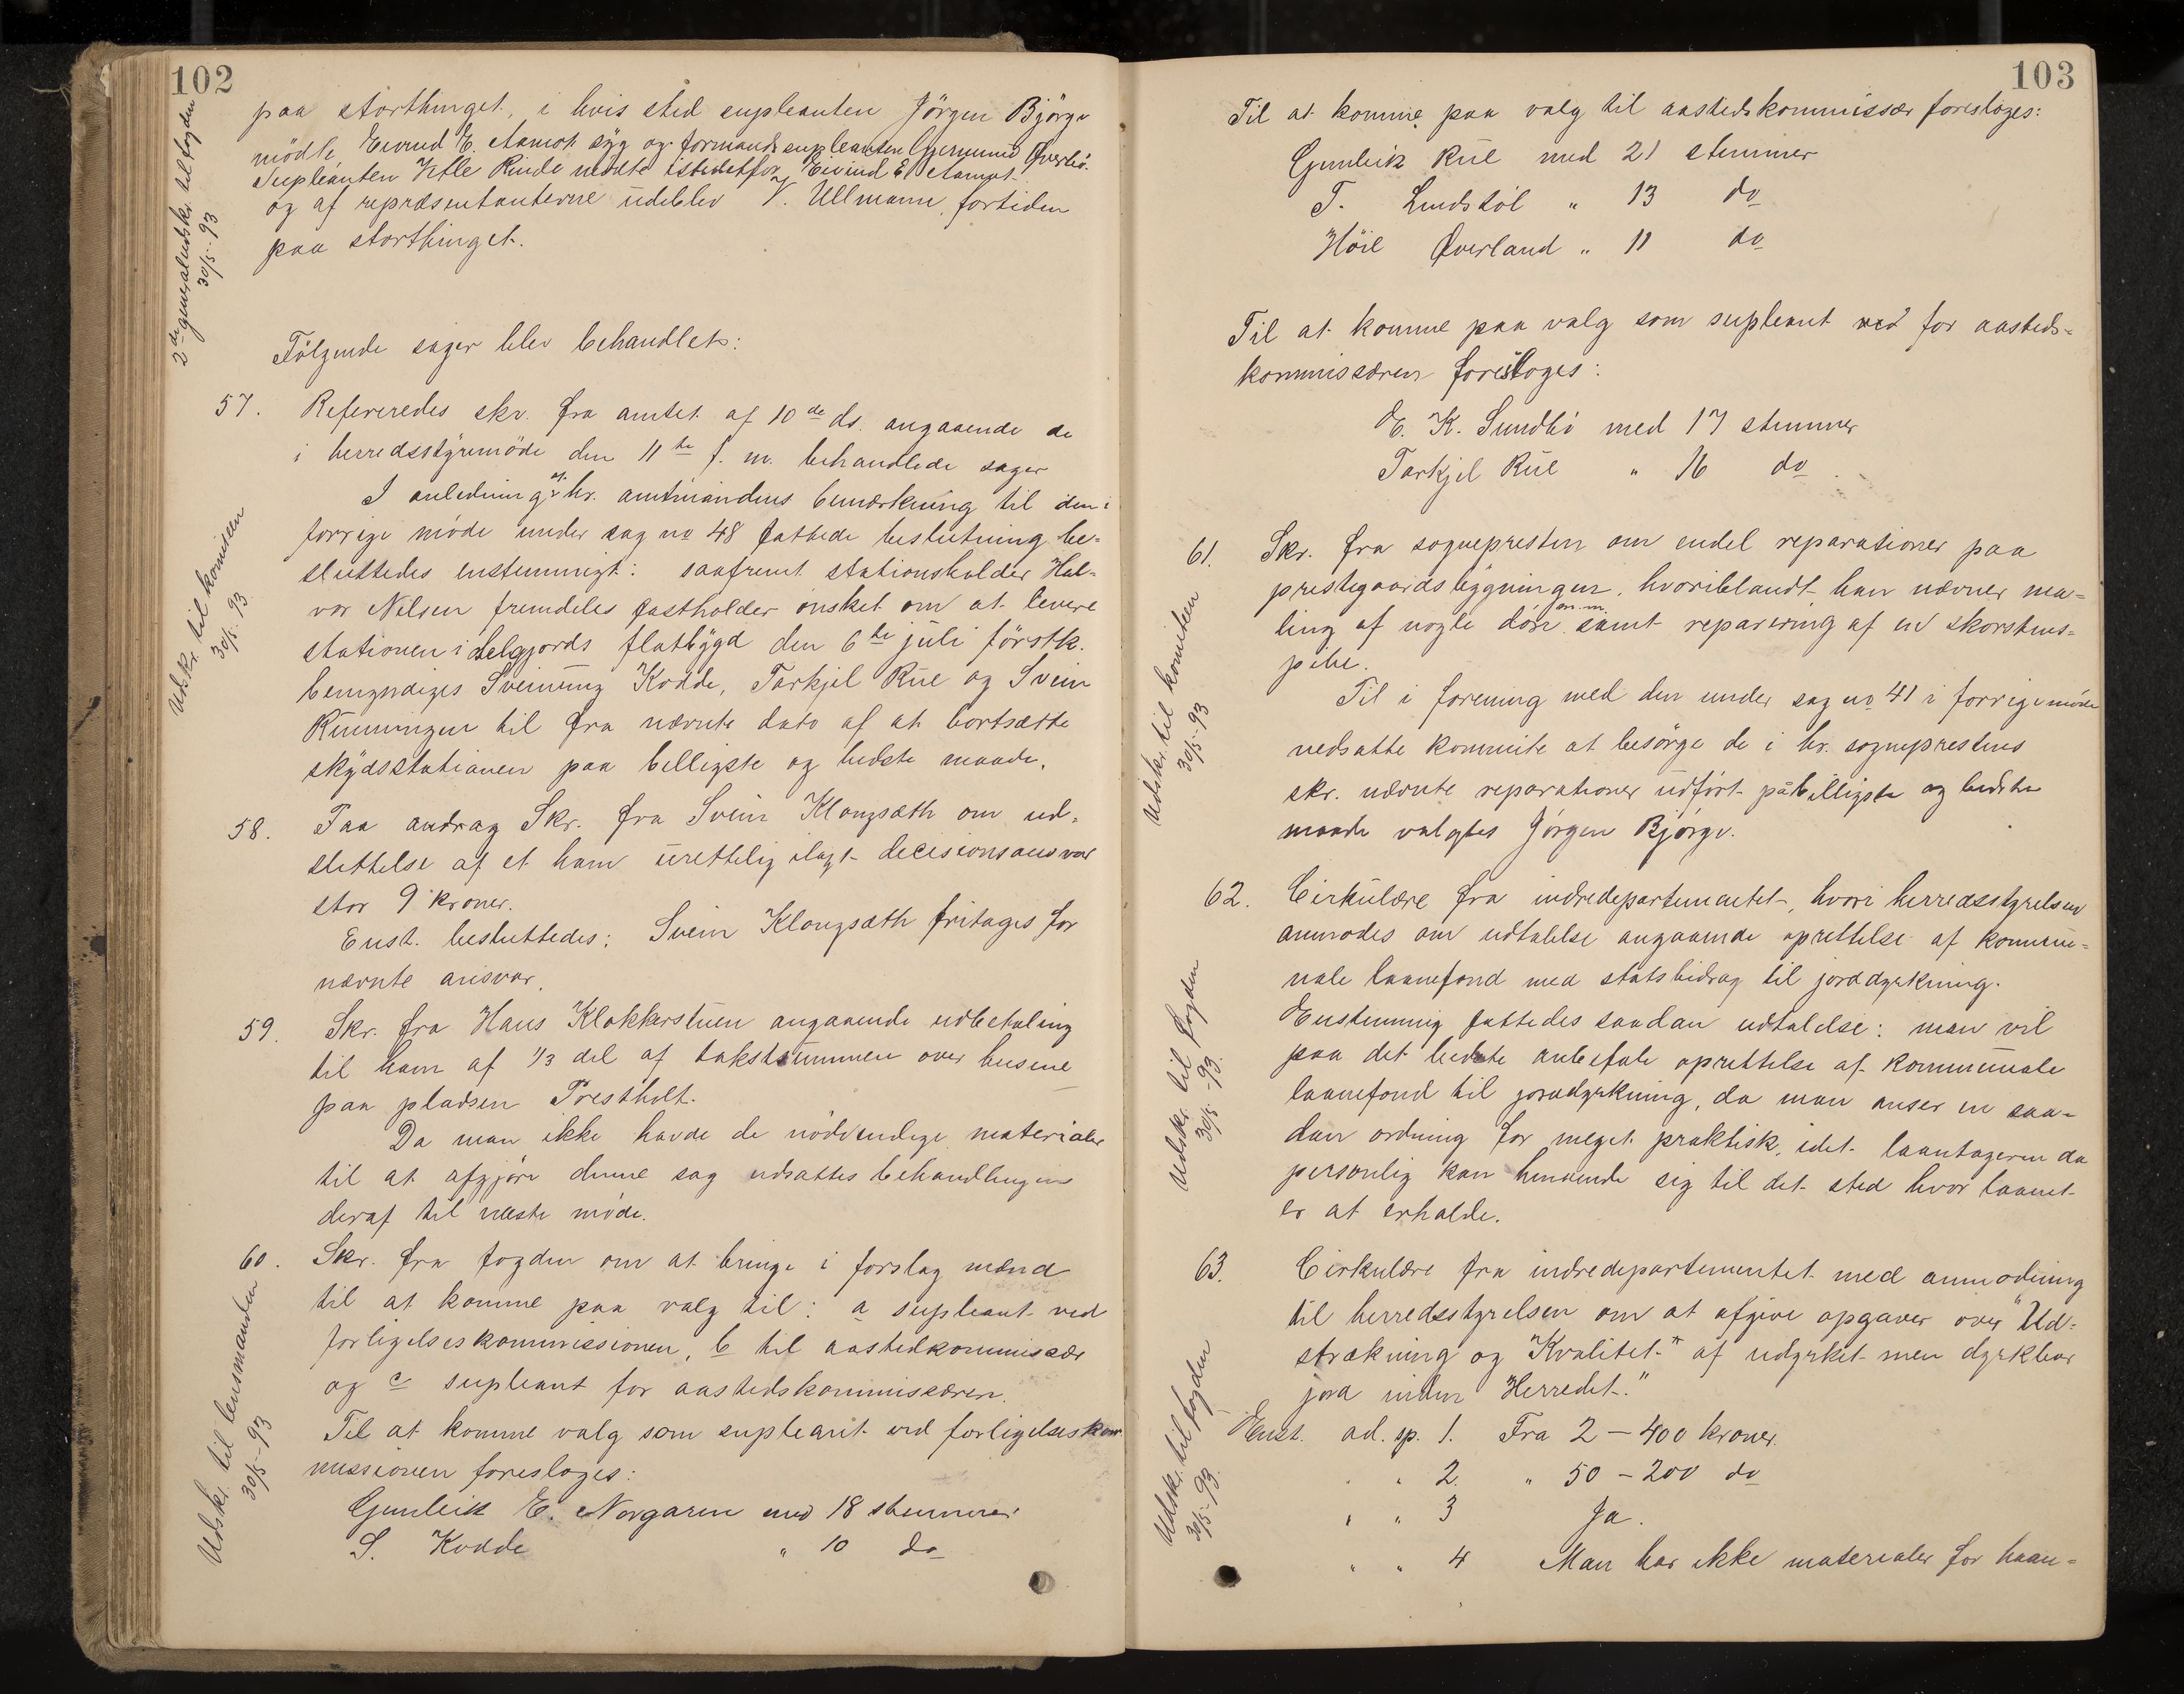 102
paa storthinget, i hvis sted supleanten Jörgen Björge
mödte, Eivind E. Aamot syg og formandssupleanten Gjermund Överbö.
Supleanten Ketle Rinde mödte istedetfor Eivind E Aamot.
og af repræsentanterne udeblev V. Ullmann, fortiden
paa storthinget.
2de generaludskr. til fogden
30/5-93
Fölgende sager blev behandlet:
57. Refereredes skr. fra amtet af 10de ds. angaaende de
i herredsstyremöde den 11te f. m. behandlede sager
I anledning af hr. amtmandens bemærkning til den i
forrige möde under sag no 48 fattede beslutning be-
sluttedes enstemmigt: saafremt stationsholder Hal-
vor Nilsen fremdeles fastholder önsket om at levere
stationen i Selgjords flatbygd den 6te juli förstk.
bemyndiges Sveinung Kodde, Tarkjel Rue og Svein
Runningen til fra nævnte dato af at bortsætte
skydsstationen paa billigste og bedste maade.
Udskr. til komiteen
30/5-93
58. Paa andrag Skr. fra Svein Klongsæth om ud-
slettelse af et ham urettelig ilagt decisionsansvar
stor 9 kroner.
Enst. besluttedes: Svein Klongsæth fritages for
nævnte ansvar.
59. Skr. fra Hans Klokkerstuen angaaende udbetaling
til ham af 1/3 del af takstsummen over husene
paa pladsen Prestholt.
Da man ikke havde de nödvendige materialer
til at afgjöre denne sag udsattes behandlingen
deraf til næste möde.
60. Skr. fra fogden om at bringe i forslag mænd
til at komme paa valg til: a supleant ved
forligelseskommissionen, b til aastedkommissær
og c supleant for aastedskommissæren.
Til at komme valg som supleant ved forligelseskom
missionen foresloges:
Gunleik E. Norgaren med 18 stemmer
S. Kodde " 10 do
Udskr. til lensmanden
30/5-93
103
Til at komme paa valg til aastedskommissær foresloges:
Gunleik Rue med 21 stemmer
T. Lindstöl " 13 do
Höie Överland " 11 do
Til at komme paa valg som supleant ved for aasteds-
kommissæren foresloges:
E. K. Sundbö med 17 stemmer
Tarkjel Rue " 16 do.
61. Skr. fra sognepresten om endel reparationer paa
prestegaardsbygningen, hvoriblandt han nævner ma-
ling af nogle döre m. m. samt reparering af en skorstens-
pibe.
Til i forening med den under sag no 41 i forrige möde
nedsatte kommite at besörge de i hr. sogneprestens
skr. nævnte reparationer udfört på billigste og bedste
maade valgtes Jörgen Björge.
Udskr. til komiteen
30/5-93
62. Cirkulære fra indredepartementet, hvori herredsstyrelsen
anmodes om udtalelse angaaende oprettelse af kommu-
nale laanefond med statsbidrag til jorddyrkning.
Enstemmig fattedes saadan udtalelse: man vil
paa det bedste anbefale oprettelse af kommunale
laanefond til jorddyrkning, da man anser en saa-
dan ordning for meget praktisk, idet laantageren da
personlig kan henvende sig til det sted hvor laanet
er at erholde.
Udskr. til fogden
30/5-93.
63. Cirkulære fra indredepartementet med anmodning
til herredsstyrelsen om at afgive opgaver over "Ud-
strækning og "Kvalitet" af udyrket men dyrkbar
jord inden "Herredet."
Enst. ad. sp. 1. Fra 2 – 400 kroner.
" " 2. " 50 – 200 do
" " 3 Ja.
" " 4 Man har ikke materialer for haan-
Udskr. til fogden
30/5-93.